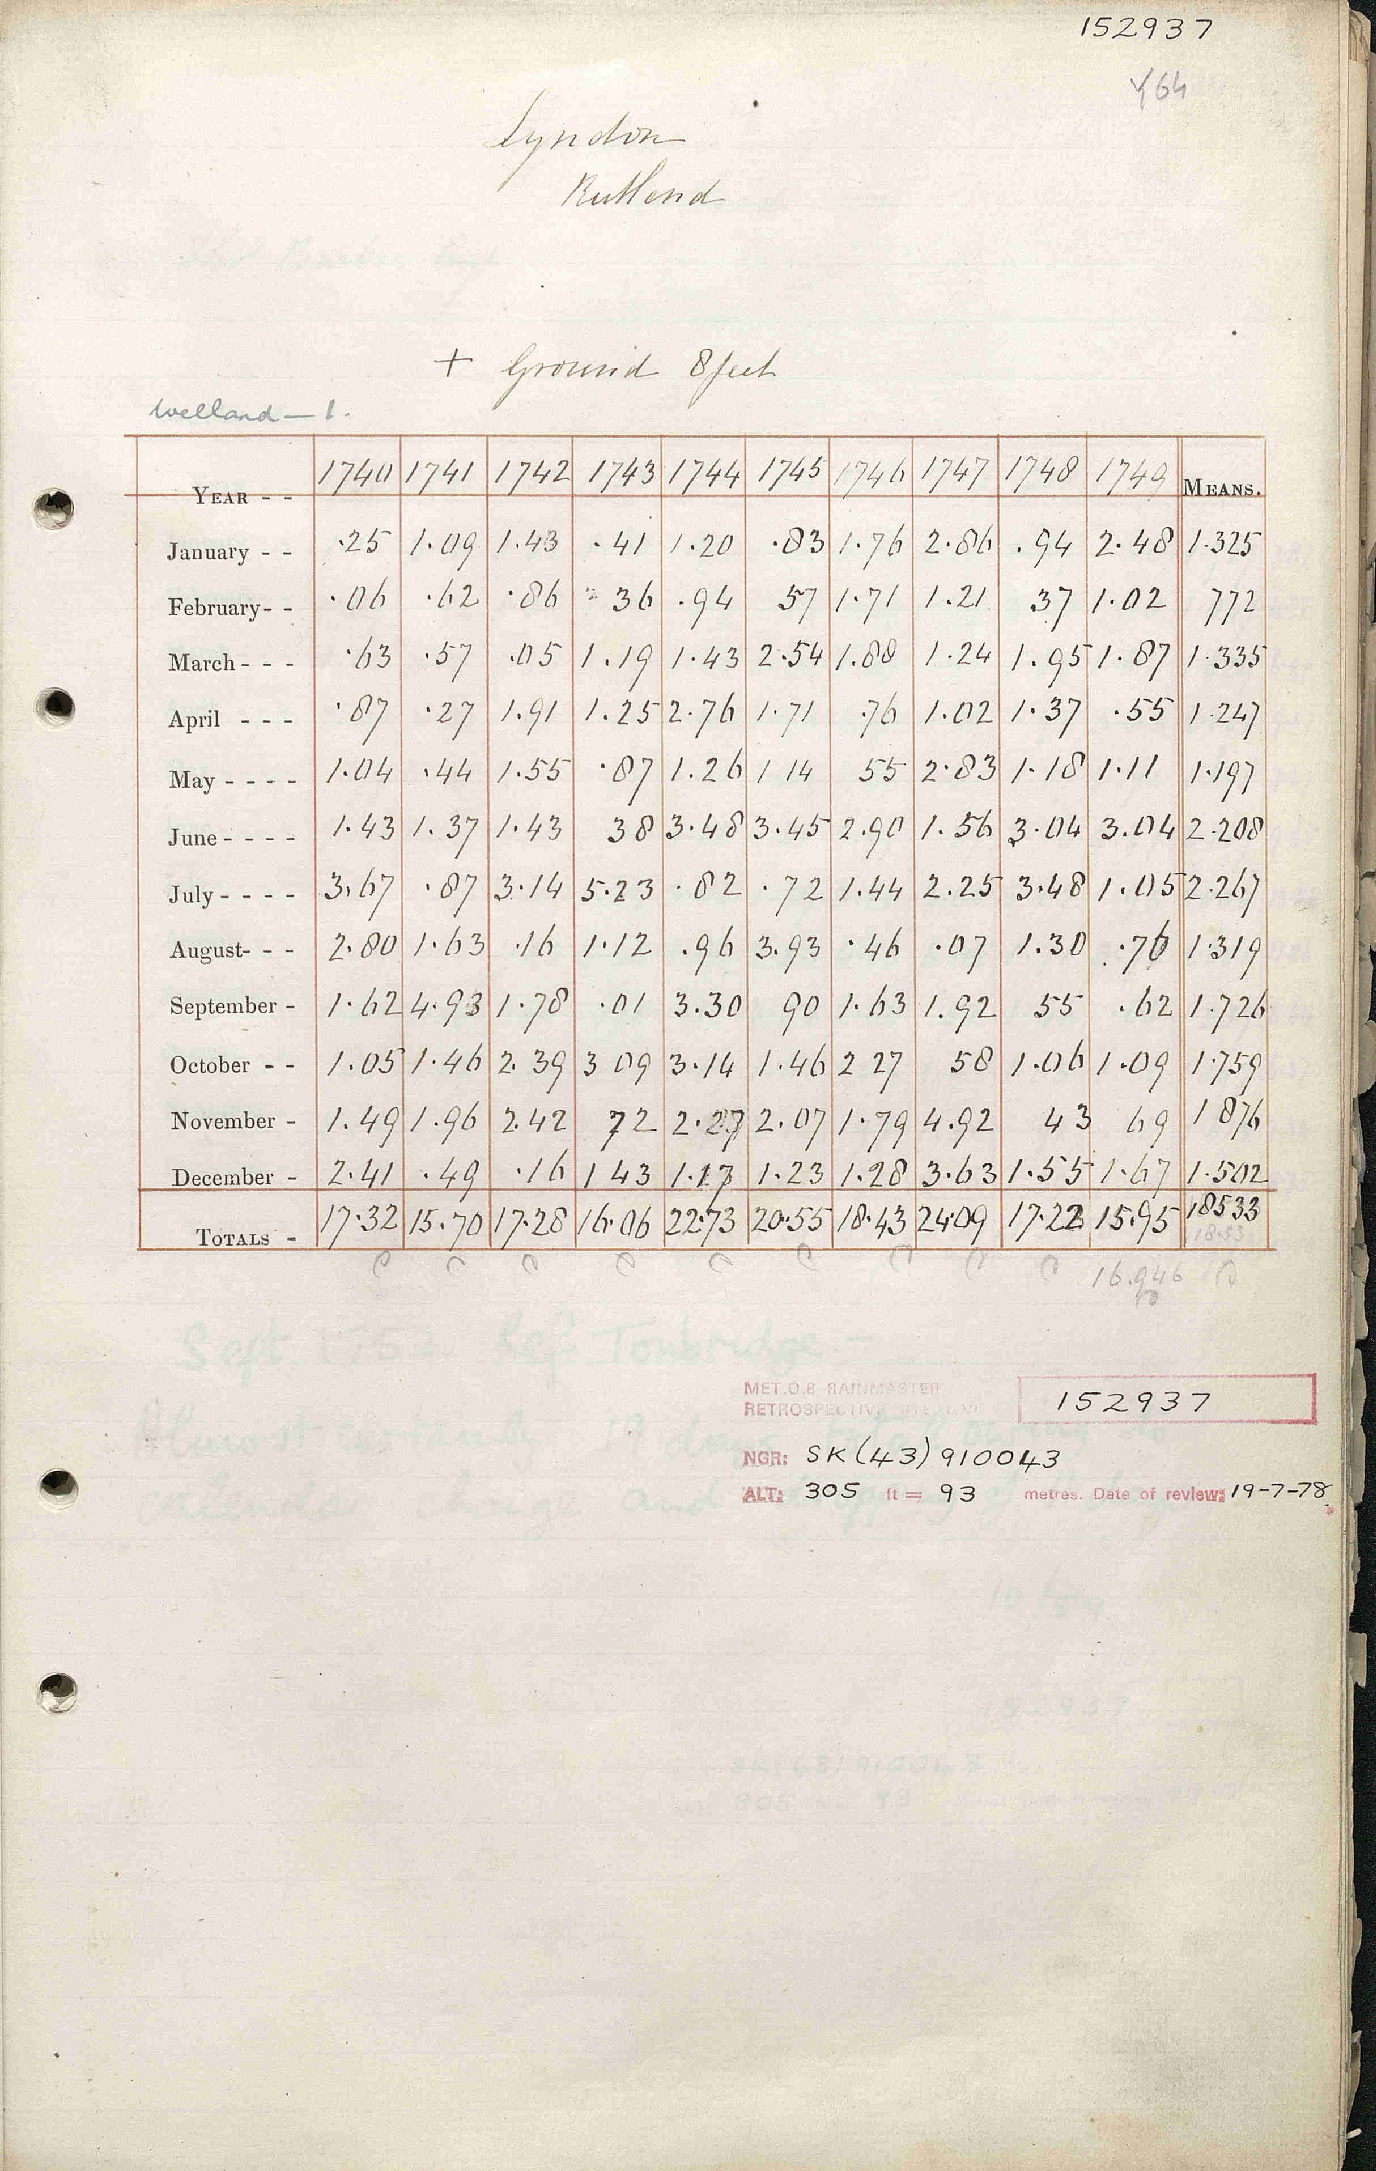 152937
Y64
Lyndon
Rutland
+ Ground 8 feet
Welland — 1.
YEAR - - 1740 1741 1742 1743 1744 1745 1746 1747 1748 1749 MEANS.
January - - .25 1.09 1.43 .41 1.20 .83 1.76 2.86 .94 2.48 1.325
February- - .06 .62 .86 36 .94 57 1.71 1.21 37 1.02 772
March - - - .63 .57 .05 1.19 1.43 2.54 1.88 1.24 1.95 1.87 1.335
April - - - .87 .27 1.91 1.25 2.76 1.71 .76 1.02 1.37 .55 1.247
May - - - - 1.04 .44 1.55 .87 1.26 1 14 55 2.83 1.18 1.11 1.197
June - - - - 1.43 1.37 1.43 38 3.48 3.45 2.90 1.56 3.04 3.04 2.208
July - - - - 3.67 .87 3.14 5.23 .82 .72 1.44 2.25 3.48 1.05 2.267
August- - - 2.80 1.63 .16 1.12 .96 3.93 .46 .07 1.30 .76 1.319
September - 1.62 4.93 1.78 .01 3.30 90 1.63 1.92 55 .62 1.726
October - - 1.05 1.46 2.39 3 09 3.14 1.46 2 27 58 1.06 1.09 1.759
November - 1.49 1.96 2.42 72 2.27 2.07 1.79 4.92 43 69 1 876
December - 2.41 .49 .16 1 43 1.17 1.23 1.28 3.63 1.55 1.67 1.502
TOTALS - 17.32 15.70 17.28 16.06 22.73 20.55 18.43 24.09 17.22 15.95 18533
18.53
16.946
Sept. 1752 Ref. Tonbridge —
MET.O.8 RAINMASTER
RETROSPECTIVE 152937
NGR: SK (43) 910043
ALT: 305 ft = 93 metres. Date of review: 19-7-78